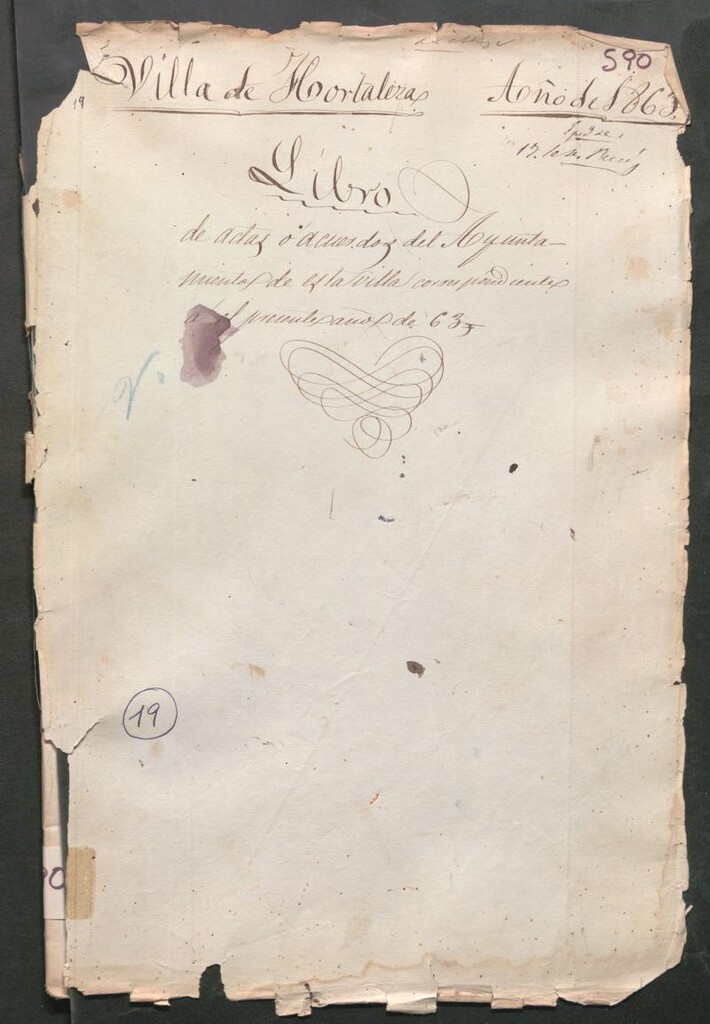 590
Villa de Hortaleza Año de 1863.
19
17.
Libro
de actas o acuerdos del Ayunta-
miento de esta villa correspondiente
a el presente año de 63
19